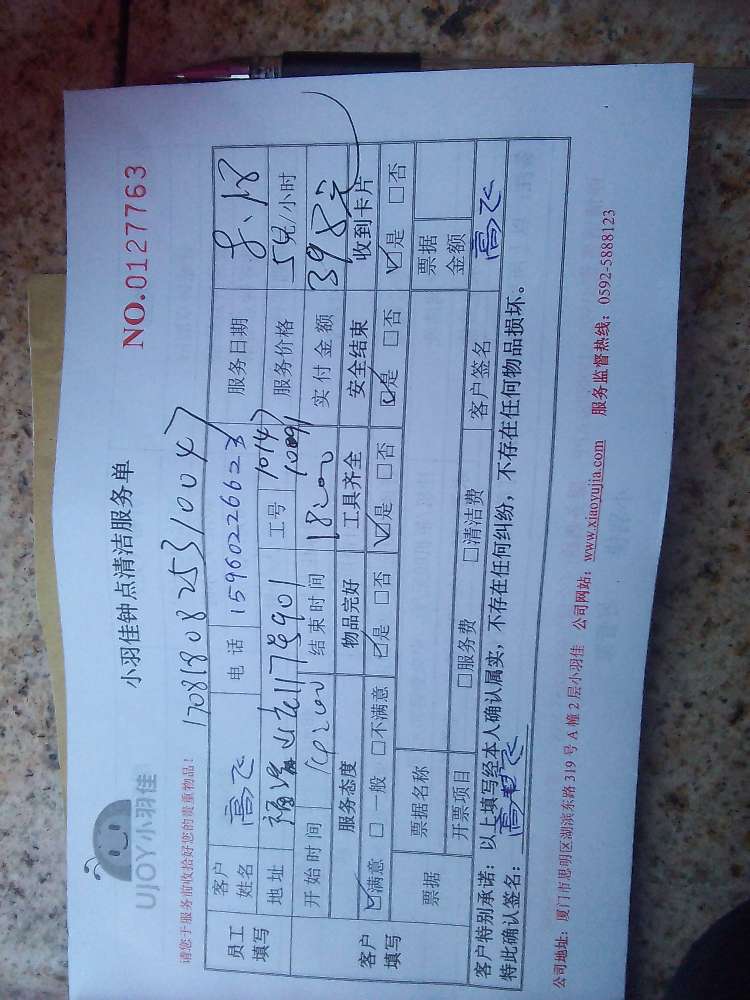 UJOY小羽佳
小羽佳钟点清洁服务单
NO.0127763
请您于服务前收拾好您的贵重物品！
1708180825310047
员工填写 客户姓名 高飞 电话 15960226623 服务日期 8、18
地址 117号901 工号 10147 服务价格 元/小时
开始时间 14:00 结束时间 18:00 实付金额 398元
客户填写 服务态度 物品完好 工具齐全 安全结束 收到卡片
☑满意 □一般 □不满意 ☑是 □否 ☑是 □否 ☑是 □否 ☑是 □否
票据 票据名称 票据金额
开票项目 □服务费 □清洁费 客户签名 高飞
客户特别承诺：以上填写经本人确认属实，不存在任何纠纷，不存在任何物品损坏。
特此确认签名：高飞
公司地址：厦门市思明区湖滨东路319号A幢2层小羽佳 公司网站：www.xiaoyujia.com 服务监督热线：0592-5888123